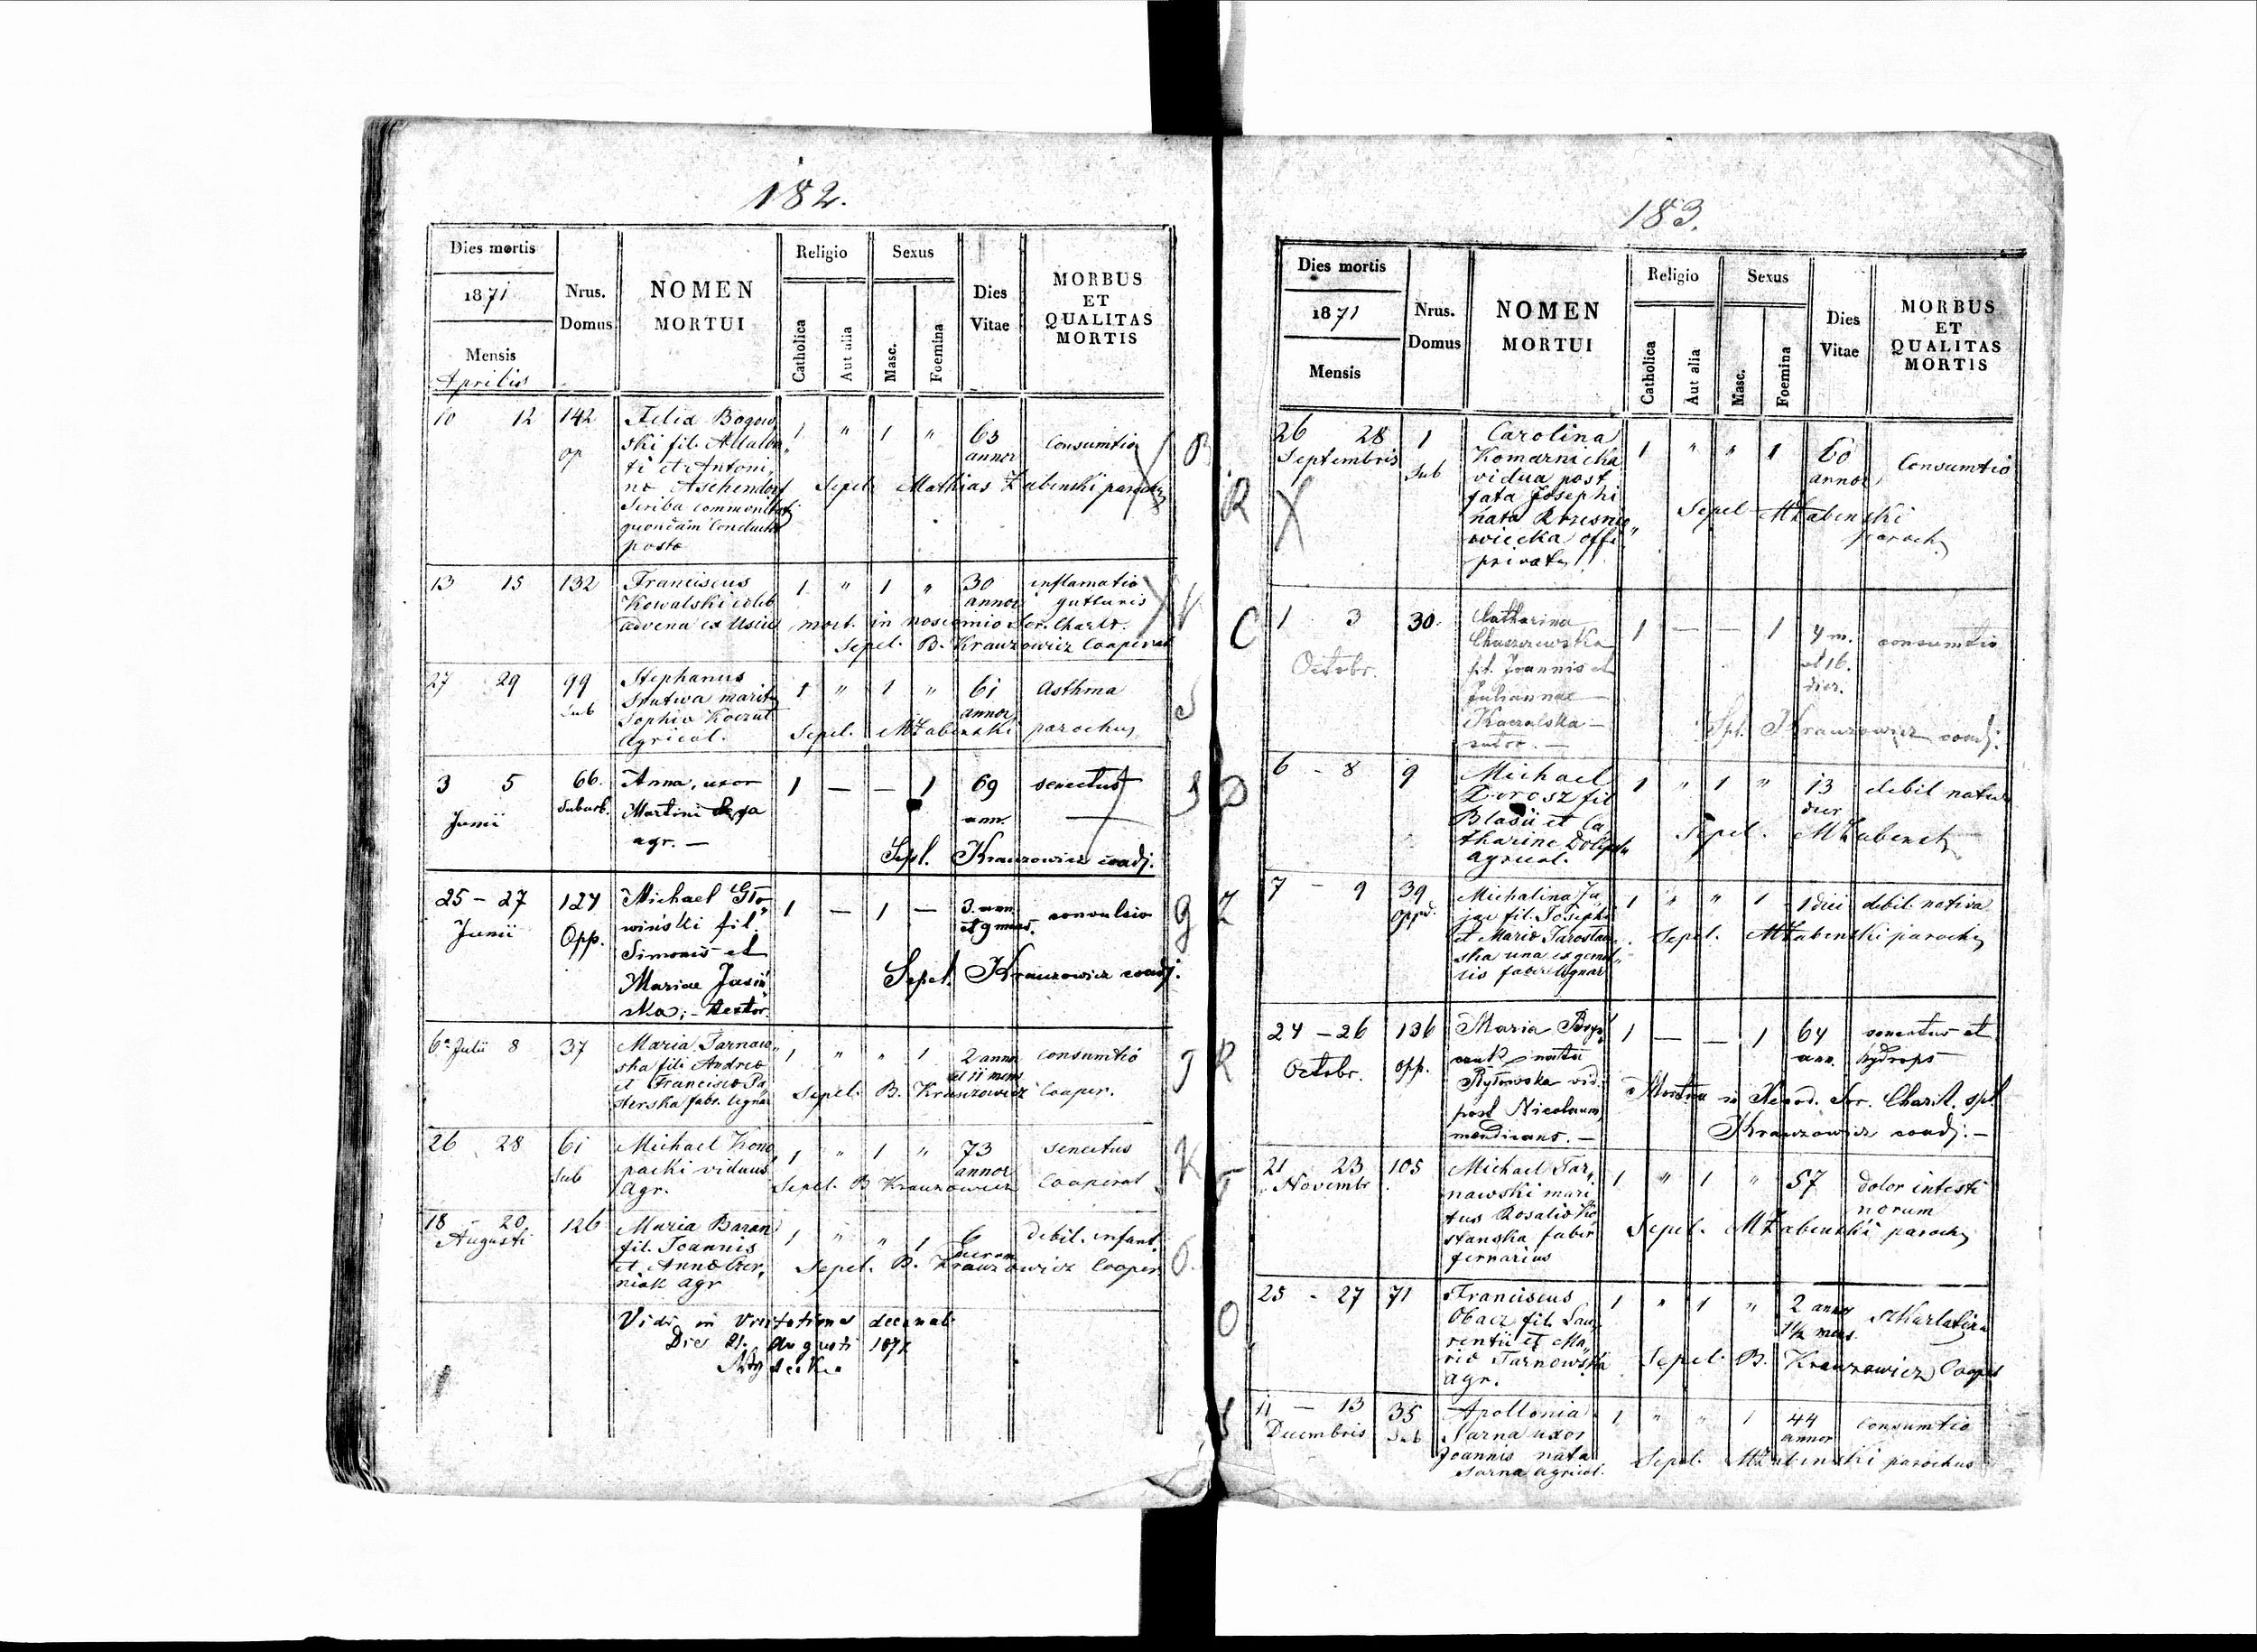 182.
Dies mortis
1871
Mensis
Aprilis
Nrus.
Domus
NOMEN
MORTUI
Religio
Catholica
Aut alia
Sexus
Masc.
Foemina
Dies
Vitae
MORBUS
ET
QUALITAS
MORTIS
10 12 142 Felix Bogow 1 " 1 " 63 Consumtio
op ski fil. annor
ti et Antoni
næ Aschendorf Sepel. Mathias Żabenski
Scriba
quondam
13 15 132 Franciscus 1 " 1 " 30 inflamatio
Kowalski annor gutturis
advena mort. in nosocomio Sor. Charit.
Sepel. B. Krauzowicz Cooperat
27 29 99 Stephanus 1 " 1 " 61 Asthma
Sub marit annor
Sophia
Agricol. Sepel. MŻabenski parochus
3 5 66. Anna, uxor 1 — — 1 69 senectus
Junii Suburb. Martini ann. —
agr. —
Sepl. Krauzowicz coadj.
25 - 27 124 Michael Gło 1 — 1 — 3. ann. convulsio
Junii Opp. wiński fil. et 9 mens.
Simonis et
Mariae Jasiń Sepel. Krauzowicz coadj.
ska; - textor.
6a Julii 8 37 Maria Tarnaw 1 " " 1 2 annor consumtio
ska fil. Andreæ et 11 mens
et Franciscæ Pa Sepel. B. Krauzowicz Cooper.
sterska fabr. lignar
26 28 61 Michael Kono 1 " 1 " 73 senectus
Sub packi viduus annor
Agr. Sepel. B Krauzowicz Cooperat
18 - 20 126 Maria Baran 1 " " 1 6 debil. infant.
Augusti fil. Joannis
et Annæ Czer Sepel. B. Krauzowicz Cooper
niak agr
Vidi in Visitatione decanali
Die 21. Augusti 1871
183.
Dies mortis
1871
Mensis
Nrus.
Domus
NOMEN
MORTUI
Religio
Catholica
Aut alia
Sexus
Masc.
Foemina
Dies
Vitae
MORBUS
ET
QUALITAS
MORTIS
26 28 1 Carolina 1 " " 1 60 Consumtio
Septembris Sub Komarnicka annor
vidua post
fata Josephi Sepel MŻabenski
nata paroch
privat
1 3 30. Catharina 1 — — 1 4 m. consumtio
Octobr. et 16.
fil. Joannis et dier.
Juliannae —
Spl. Krauzowicz coadj.
sutor. —
6 - 8 9 Michael 1 " 1 " 13 debil nativa
Dorosz fil dier
Blasii et Ca Sepel. MŻabensk
tharinæ
agricol.
7 - 9 39 Michalina Za 1 " " 1 1 diei debil. nativa
oppid. jac fil. Josephi
et Mariæ Sepel. MŻabenski paroch
ska una ex gemel
lis faber lignar
24 - 26 136 Maria 1 — — 1 64 senectus et
Octobr. opp. nata ann. hydrops
Ryłowska vid.
post Nicolaum Mortua in Sor. Charit. spl
mendicans. — Krauzowicz coadj. —
21 23 105 Michael Tar 1 " 1 " 57 dolor intesti
Novembr nawski mari norum
tus Rosaliæ Ko Sepel. MŻabenski paroch
stanska faber
ferrarius
25 - 27 71 Franciscus 1 " 1 " 2 annor skarlatina
Obacz fil. Lau 1½ mens.
rentii et Ma
riæ Tarnowska Sepel. B. Krauzowicz Cooper
agr.
11 - 13 35 Apollonia 1 " " 1 44 Consumtio
Decembris Sub Sarna uxor annor
Joannis nata Sepel. MŻabenski parochus
Sarna agricol.